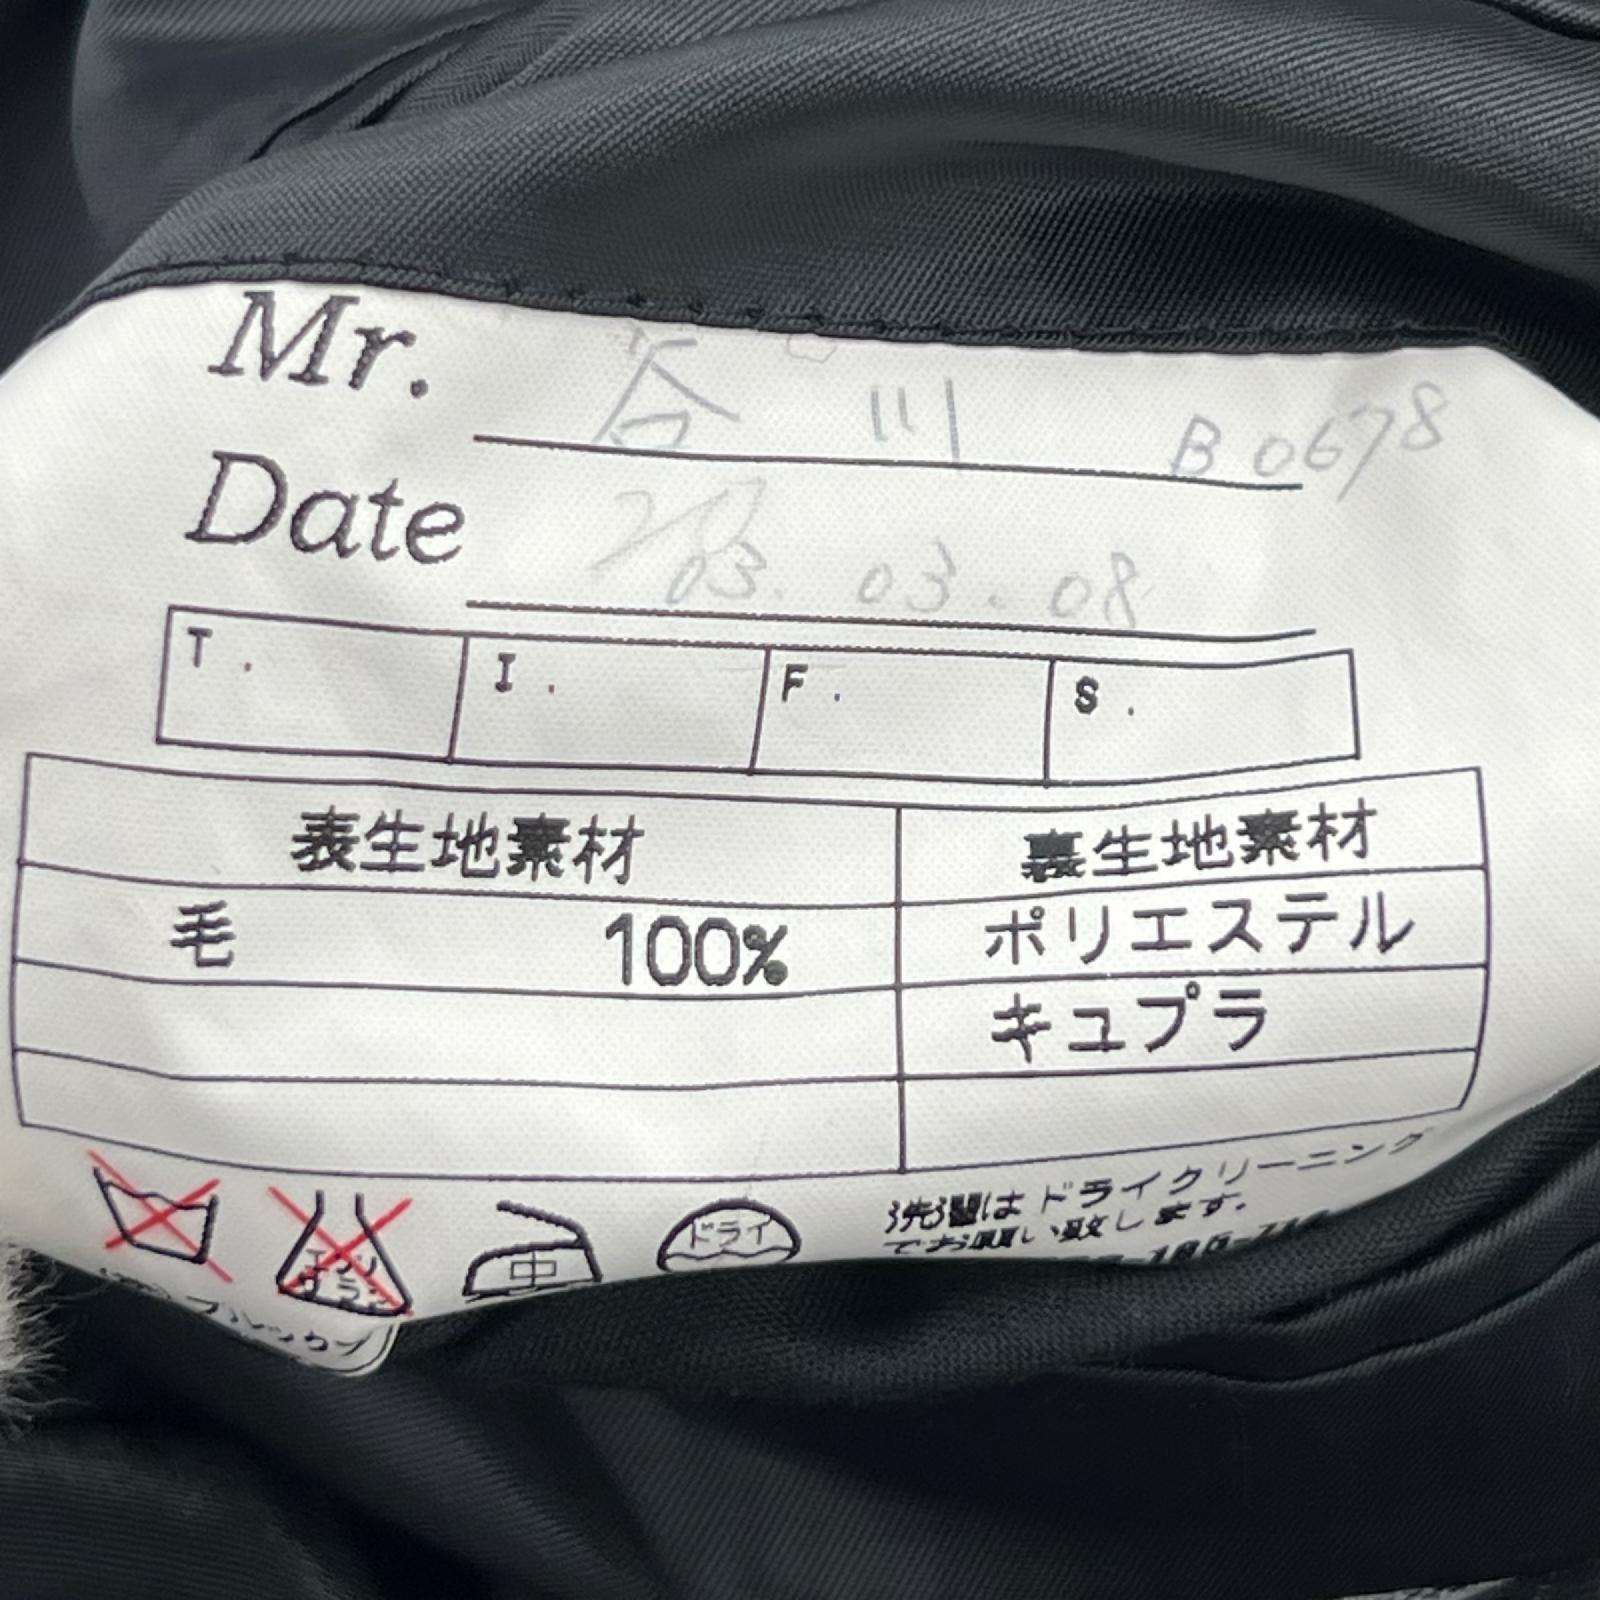 Mr. 谷川 B0678
Date 03.03.08
T. I. F. S.
表生地素材 裏生地素材
毛 100% ポリエステル
キュプラ
エンソサラシ 中 ドライ
洗濯はドライクリーニング
でお願い致します。